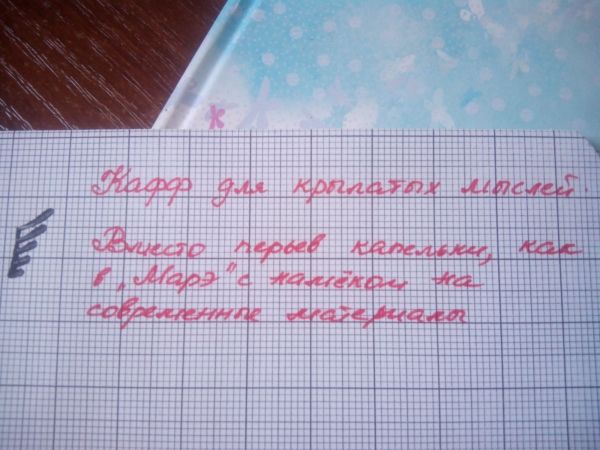 Кафф для крылатых мыслей.
Вместо перьев капельки, как
в „Марэ" с намёком на
современные материалы